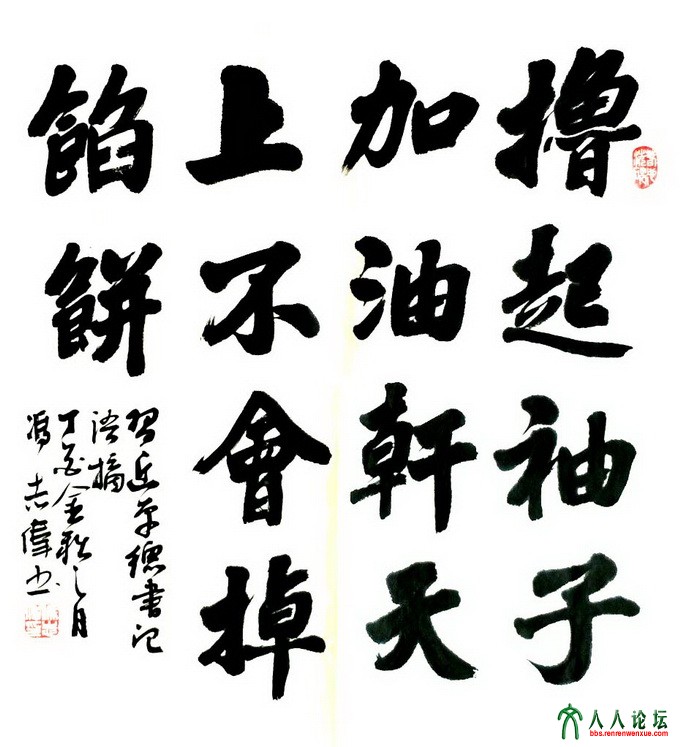 擼起袖子
加油軒天
上不會掉
餡餅
习近平總書记
语摘
丁酉金秋之月
冯志偉书
人人论坛
bbs.renrenwenxue.com